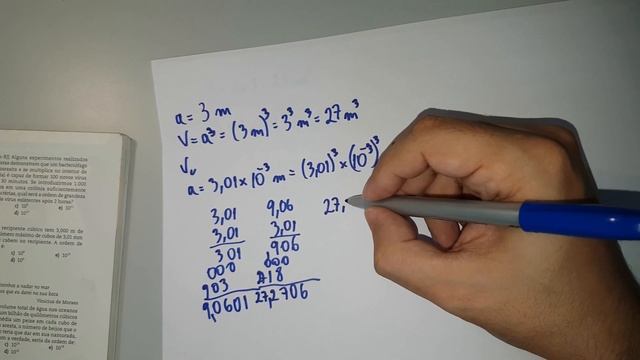 a = 3 m
V = a³ = (3 m)³ = 3³ m³ = 27 m³
Vᵥ
a = 3,01 × 10⁻³ m = (3,01)³ × (10⁻³)³
3,01 9,06 27,
3,01 3,01
301 906
000 000
903 718
9,0601 27,2706
RJ) Alguns experimentos realizados
demonstram que um bacteriófago
parasita e se multiplica no interior de
é capaz de formar 100 novos vírus
30 minutos. Se introduzirmos 1.000
em uma colônia suficientemente
qual será a ordem de grandeza
de vírus existentes após 2 horas?
recipiente cúbico tem 3,000 m de
número máximo de cubos de 3,01 mm
cabem no recipiente. A ordem de
é:
nadar no mar
que eu darei na sua boca
Vinicius de Moraes
volume total de água nos oceanos
um bilhão de quilômetros cúbicos
um peixe em cada cubo de
aresta, o número de beijos que o
teria que dar em sua namorada,
a verdade, seria da ordem de: